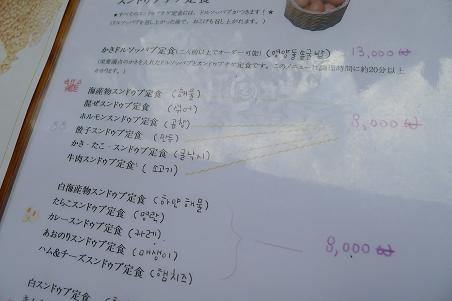 スンドゥブチゲ定食
★すべてのスンドゥブチゲ定食には、ドルソッパブがつきます！★
かきドルソッパブ定食(二人前以上でオーダー可能) (영양돌솥굴밥) 13,000 ₩
海産物スンドゥブ定食 (해물)
混ぜスンドゥブ定食 (섞어)
ホルモンスンドゥブ定食 (곱창)
餃子スンドゥブ定食 (만두) 8,000 ₩
かき・たこ・スンドゥブ定食 (굴낙지)
牛肉スンドゥブ定食 (소고기)
白海産物スンドゥブ定食 (하얀해물)
たらこスンドゥブ定食 (명란)
カレースンドゥブ定食 (카레)
あおのりスンドゥブ定食 (매생이) 8,000 ₩
ハム&チーズスンドゥブ定食 (햄치즈)
白スンドゥブ定食